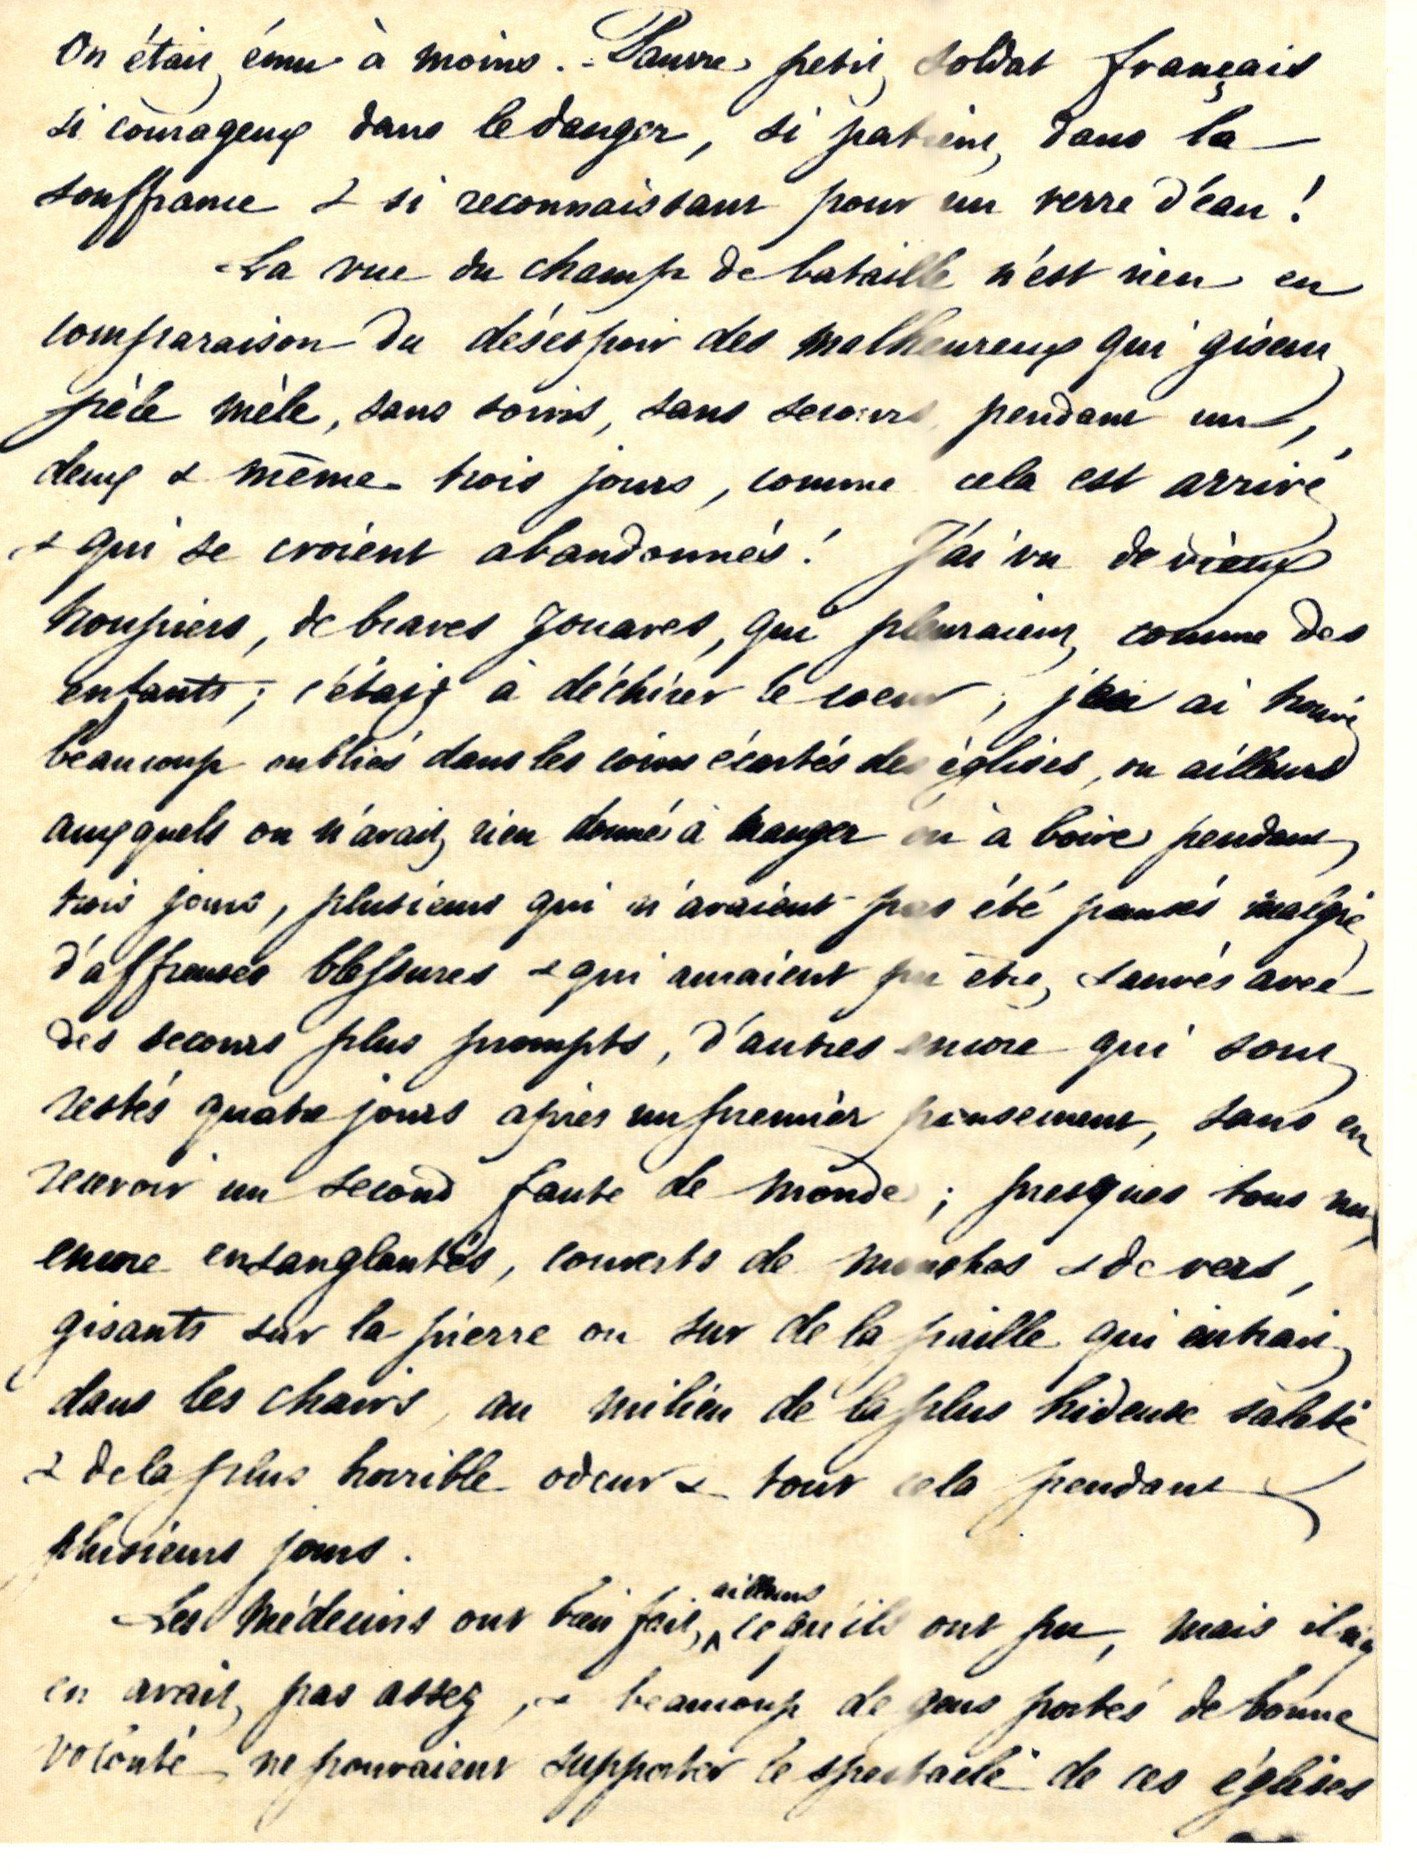 On était ému à moins. - Pauvre petit soldat français
si courageux dans le danger, si patient dans la
souffrance & si reconnaissant pour un verre d'eau !
La vue du champ de bataille n'est rien en
comparaison du désespoir des malheureux qui gisent
pèle mèle, sans soins, sans secours, pendant un,
deux & même trois jours, comme cela est arrivé
& qui se croient abandonnés ! J'ai vu de vieux
troupiers, de braves zouaves, qui pleuraient comme des
enfants ; c'était à déchirer le coeur ; j'en ai trouvé
beaucoup oubliés dans les coins écartés des églises, ou ailleurs
auxquels on n'avait rien donné à manger ou à boire pendant
trois jours, plusieurs qui n'avaient pas été pansés malgré
d'affreuses blessures & qui auraient pu être sauvés avec
des secours plus prompts, d'autres encore qui sont
restés quatre jours après un premier pansement, sans en
recevoir un second faute de monde ; presques tous nus
encore ensanglantés, couverts de mouches & de vers,
gisants sur la pierre ou sur de la paille qui entrait
dans les chairs, au milieu de la plus hideuse saleté
& de la plus horrible odeur & tout cela pendant
plusieurs jours.
Les médecins ont bien fait ailleurs ce qu'ils ont pu, mais il n'y
en avait pas assez, & beaucoup de gens portés de bonne
volonté ne pouvaient supporter le spectacle de ces églises